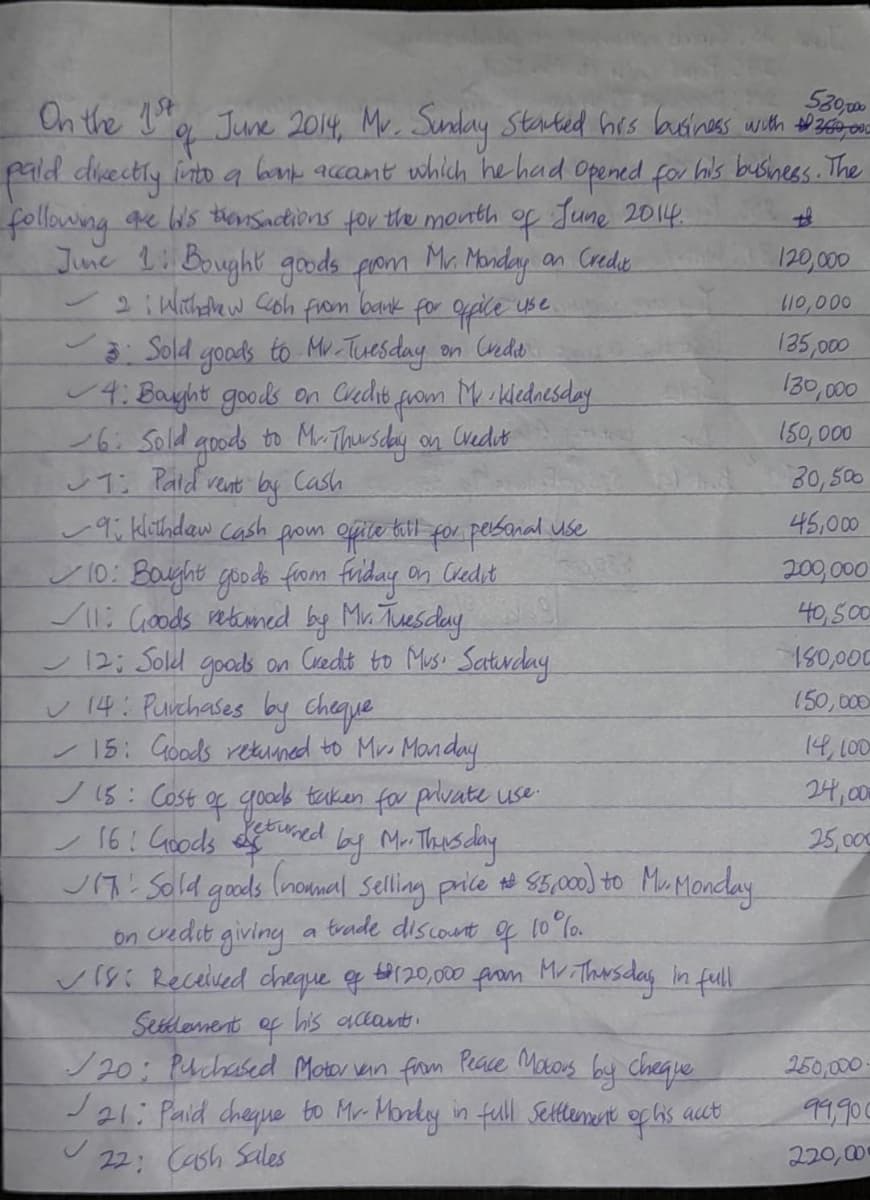 530,000
On the 1st of June 2014, Mr. Sunday Started his business with ₦360,000
paid directly into a bank account which he had opened for his business. The
following are his transactions for the month of June 2014. ₦
June 1: Bought goods from Mr. Monday on Credit 120,000
2: Withdrew Cash from bank for office use 110,000
3: Sold goods to Mr. Tuesday on Credit 135,000
4: Bought goods on Credit from Mr. Wednesday 130,000
6: Sold goods to Mr. Thursday on Credit 150,000
7: Paid rent by Cash 30,500
9: Withdaw cash from office till for personal use 45,000
10: Bought goods from friday on Credit 200,000
11: Goods returned by Mr. Tuesday 40,500
12: Sold goods on Credit to Mrs. Saturday 180,000
14: Purchases by cheque 150,000
15: Goods returned to Mr. Monday 14,100
15: Cost of goods taken for private use. 24,00
16: Goods returned by Mr. Thursday 25,000
17: Sold goods (normal selling price ₦ 85,000) to Mr. Monday
on credit giving a trade discount of 10%.
18: Received cheque of ₦120,000 from Mr. Thursday in full
Settlement of his account.
20: Purchased Motor van from Peace Motors by cheque 250,000
21: Paid cheque to Mr. Monday in full settlement of his acct 99,900
22: Cash Sales 220,00